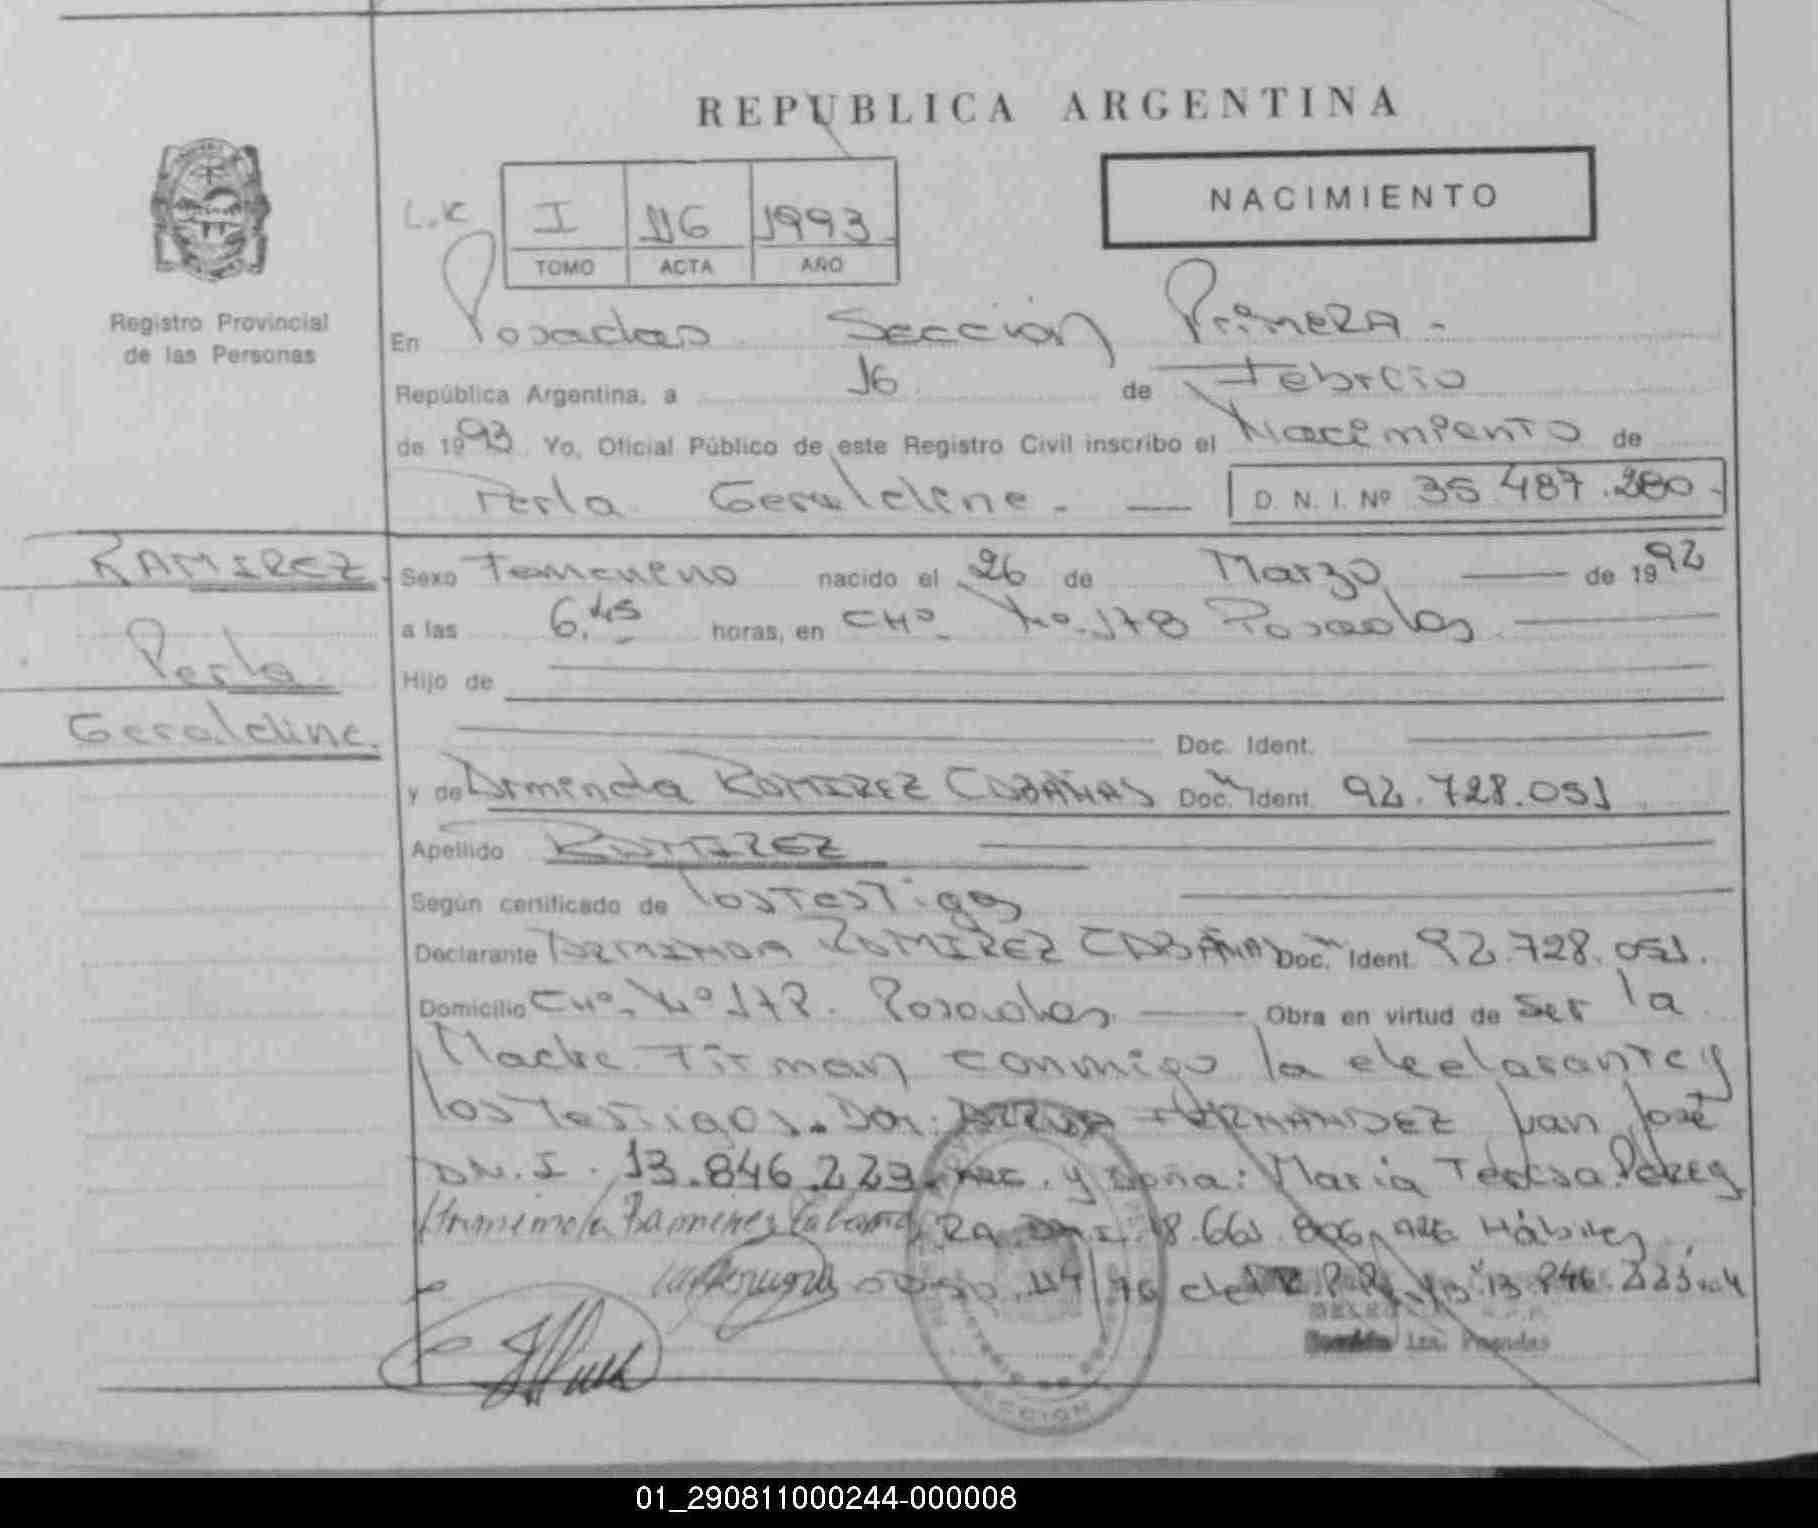 REPUBLICA ARGENTINA
NACIMIENTO
L.K
I 116 1993
TOMO ACTA AÑO
Registro Provincial
de las Personas
En Posadas Sección Primera -
República Argentina, a 16 de Febrero
de 1993. Yo, Oficial Público de este Registro Civil inscribo el Nacimiento de
Perla Geraldine. — D. N. I. Nº 35.487.280.
RAMIREZ
Perla
Geraldine.
Sexo Femenino nacido el 26 de Marzo — de 1992
a las 6.45 horas, en CHº. Nº.178 Posadas.
Hijo de
Doc. Ident.
y de Arminda RAMIREZ CABAÑAS Doc. Ident. 92.728.051
Apellido RAMIREZ
Según certificado de los Testigos
Declarante ARMINDA RAMIREZ CABAÑAS Doc. Ident. 92.728.051.
Domicilio CHº. Nº 178. Posadas — Obra en virtud de ser la
Madre. Firman conmigo la declarante y
los Testigos. Don: HERNANDEZ Juan José
D.N.I. 13.846.223. y Doña: Maria Teresa Perey
RA 18.661.806 Hábiles
de 13.846.223
SECCION
01_290811000244-000008